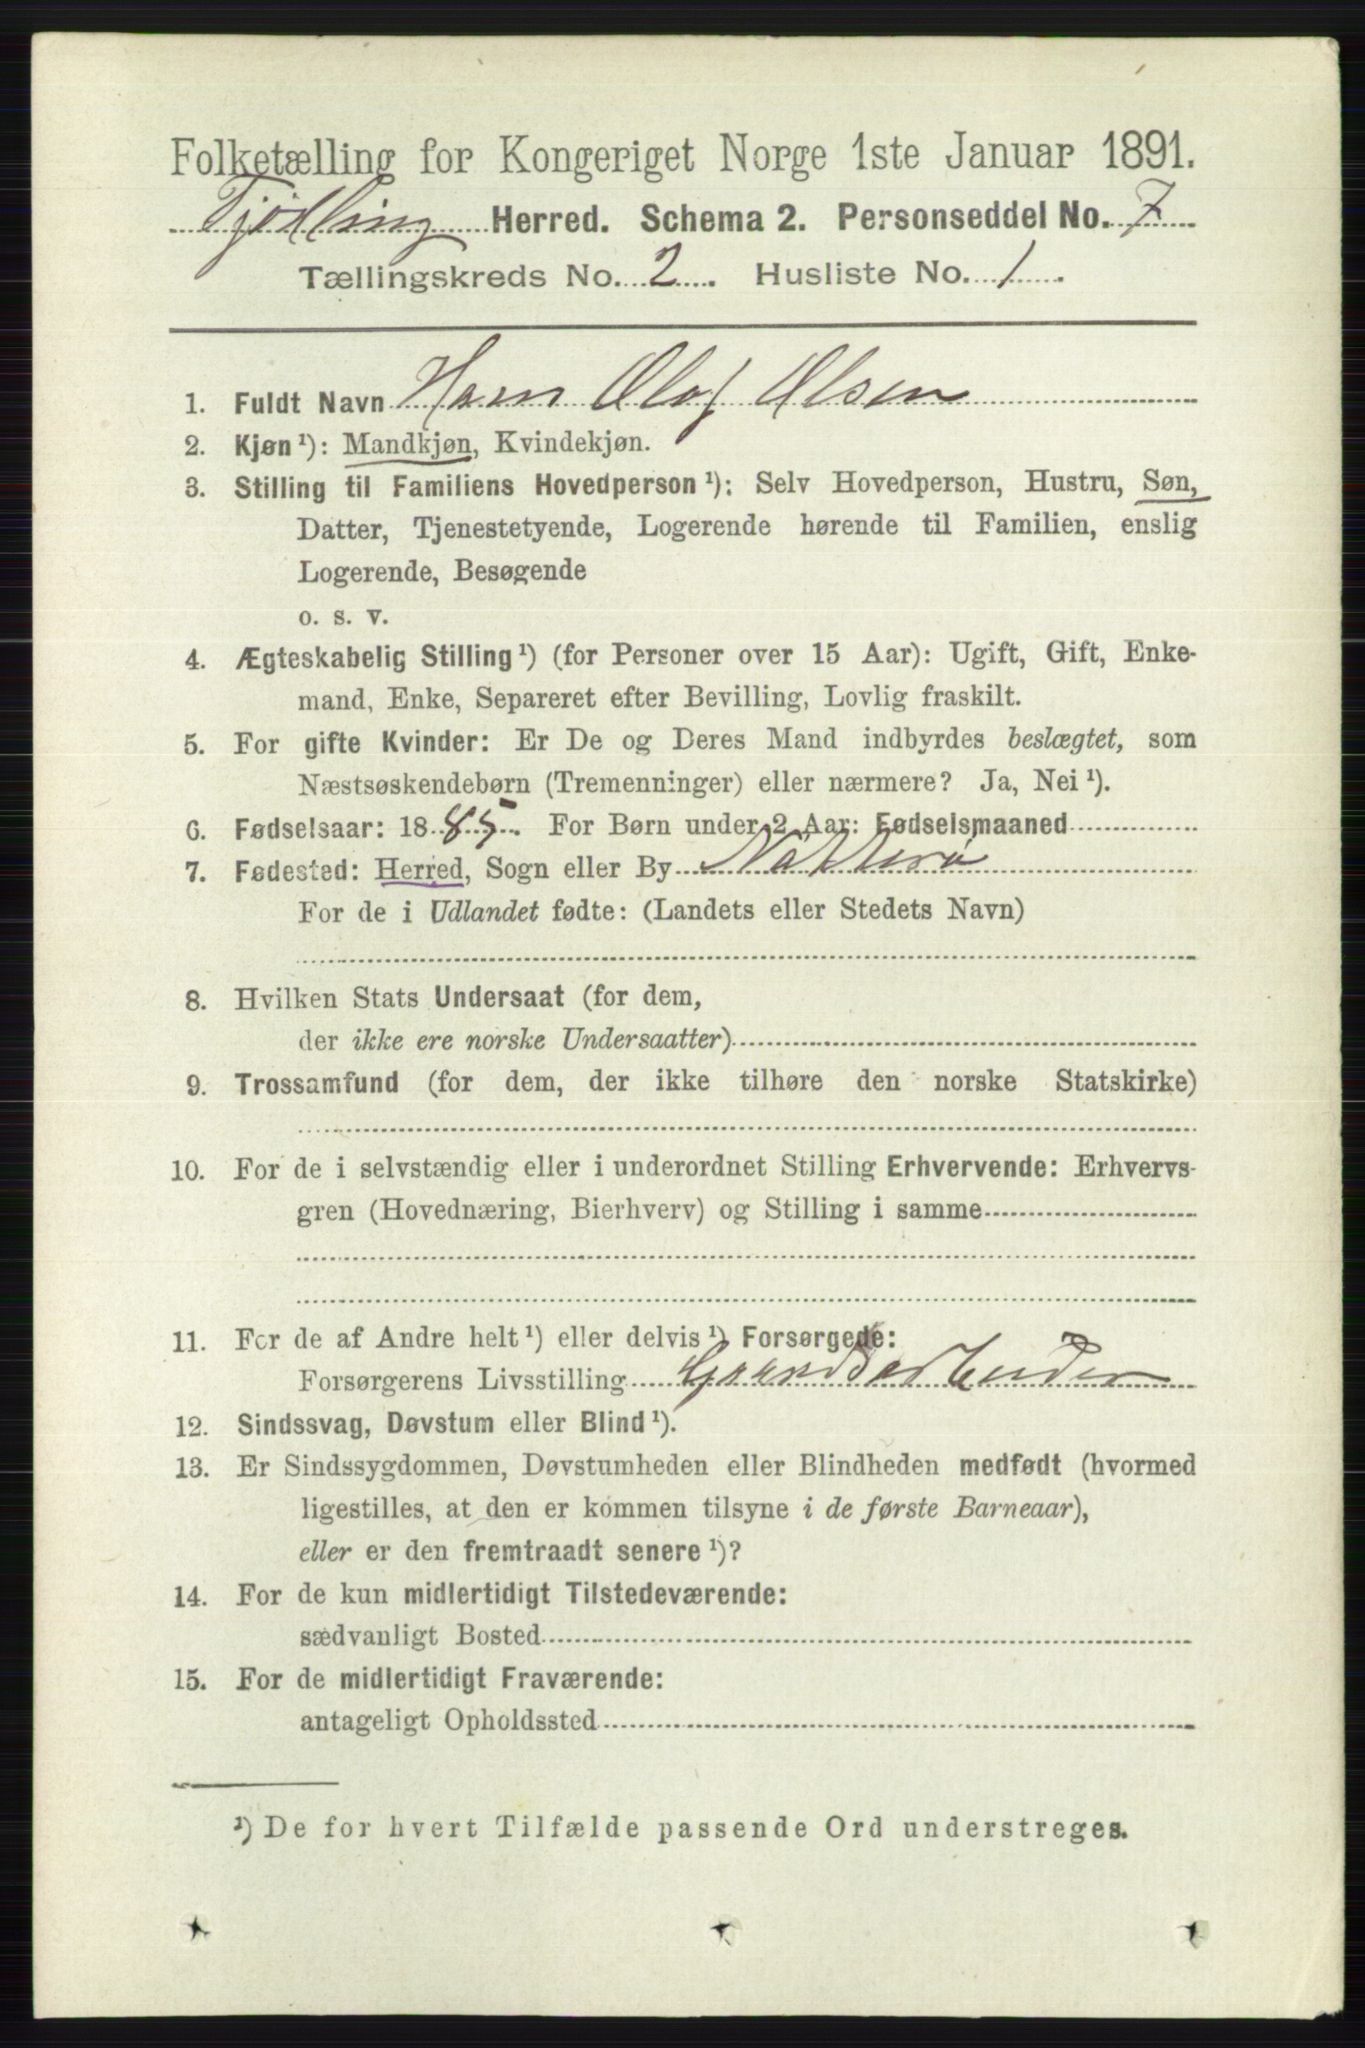 Folketælling for Kongeriget Norge 1ste Januar 1891.
Tjødling Herred. Schema 2. Personseddel No. 7
Tællingskreds No. 2. Husliste No. 1.
1. Fuldt Navn Hans Olaf Olsen
2. Kjøn ¹): Mandkjøn, Kvindekjøn.
3. Stilling til Familiens Hovedperson ¹): Selv Hovedperson, Hustru, Søn,
Datter, Tjenestetyende, Logerende hørende til Familien, enslig
Logerende, Besøgende
o. s. v.
4. Ægteskabelig Stilling ¹) (for Personer over 15 Aar): Ugift, Gift, Enke-
mand, Enke, Separeret efter Bevilling, Lovlig fraskilt.
5. For gifte Kvinder: Er De og Deres Mand indbyrdes beslægtet, som
Næstsøskendebørn (Tremenninger) eller nærmere? Ja, Nei ¹).
6. Fødselsaar: 1885. For Børn under 2 Aar: Fødselsmaaned
7. Fødested: Herred, Sogn eller By Nøtterø
For de i Udlandet fødte: (Landets eller Stedets Navn)
8. Hvilken Stats Undersaat (for dem,
der ikke ere norske Undersaatter)
9. Trossamfund (for dem, der ikke tilhøre den norske Statskirke)
10. For de i selvstændig eller i underordnet Stilling Erhvervende: Erhvervs-
gren (Hovednæring, Bierhverv) og Stilling i samme
11. For de af Andre helt ¹) eller delvis ¹) Forsørgede:
Forsørgerens Livsstilling Gaardsarbeider
12. Sindssvag, Døvstum eller Blind ¹).
13. Er Sindssygdommen, Døvstumheden eller Blindheden medfødt (hvormed
ligestilles, at den er kommen tilsyne i de første Barneaar),
eller er den fremtraadt senere ¹)?
14. For de kun midlertidigt Tilstedeværende:
sædvanligt Bosted
15. For de midlertidigt Fraværende:
antageligt Opholdssted
¹) De for hvert Tilfælde passende Ord understreges.